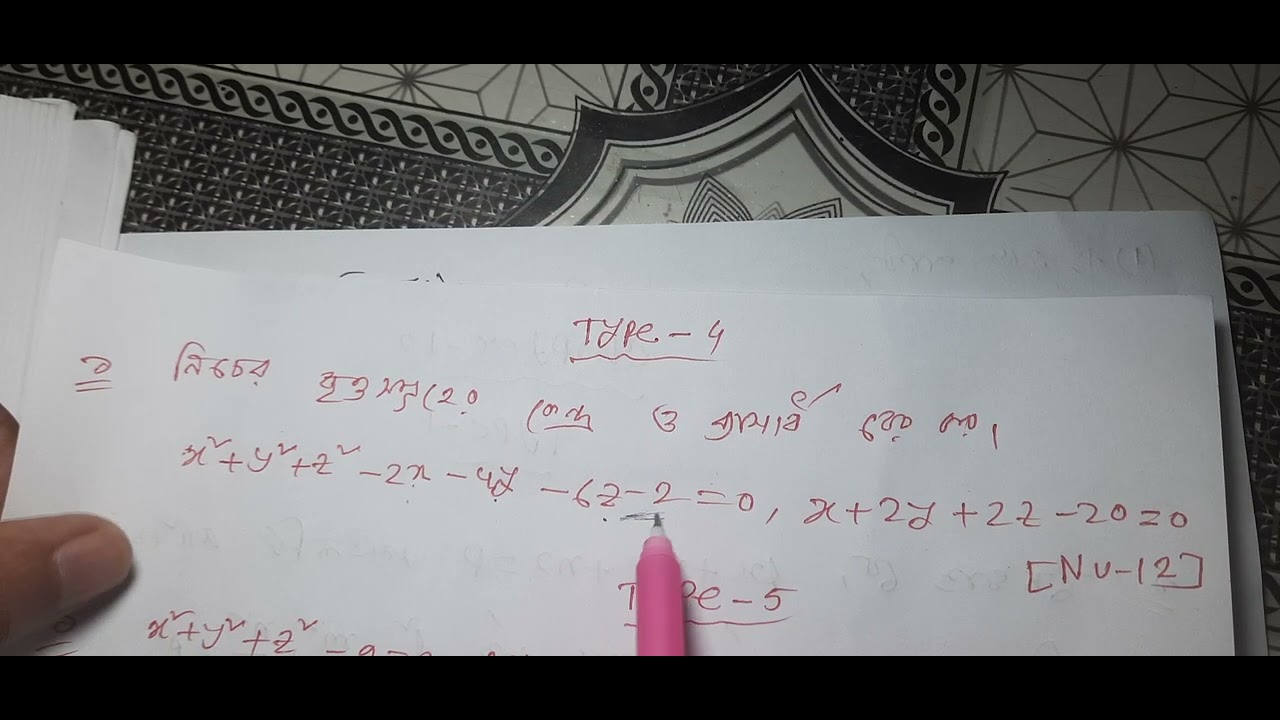 TYPE - 4
১ নিচের বৃত্তসমূহের কেন্দ্র ও ব্যাসার্ধ বের কর।
x²+y²+z² -2x -4y -6z-2=0, x+2y+2z-20=0
[NU-12]
TYPE - 5
x²+y²+z² -9=0